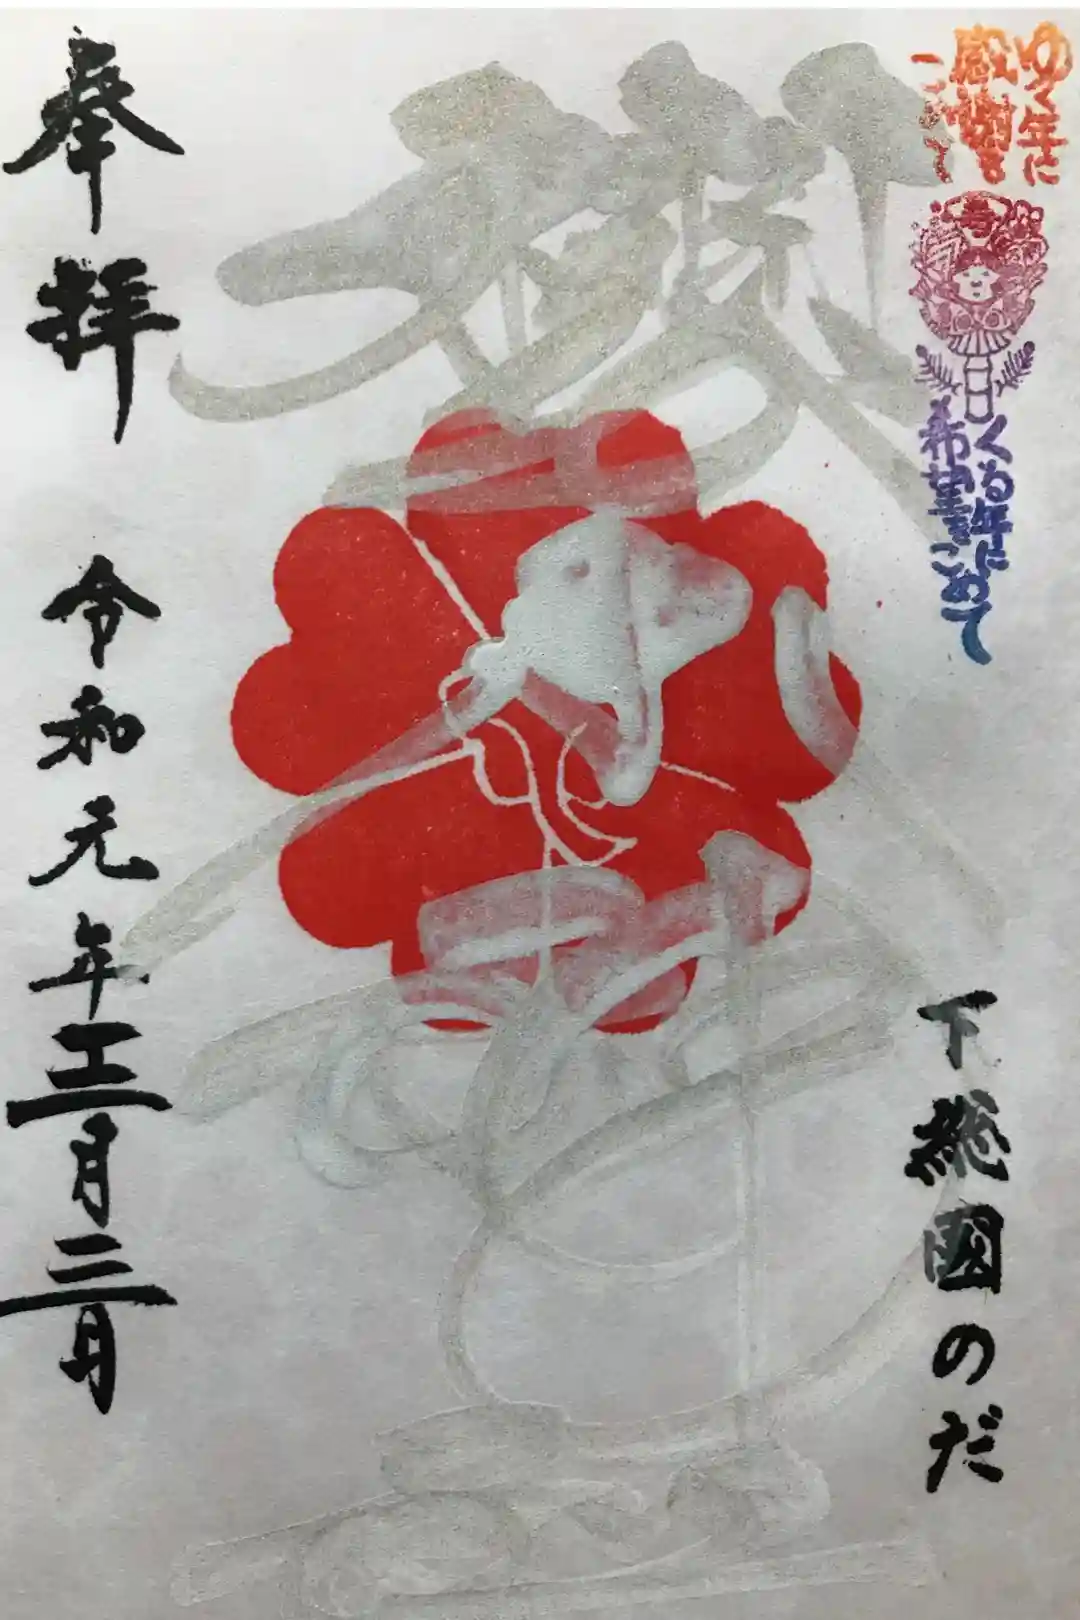 ゆく年に
感謝を
こめて
寿
くる年に
希望をこめて
下総國のだ
奉拝
令和元年十二月二日